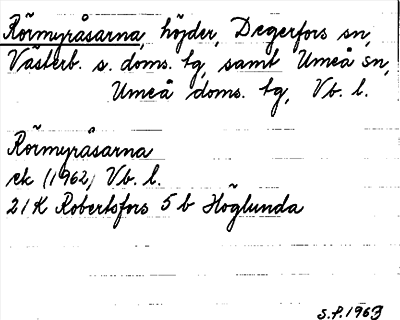 Rörmyråsarna, höjder, Degerfors sn,
Västerb. s. doms. tg, samt Umeå sn,
Umeå doms. tg, Vb. l.
Rörmyråsarna
ek (1962) Vb. l.
21K Robertsfors 5 b Höglunda
S.P. 1963